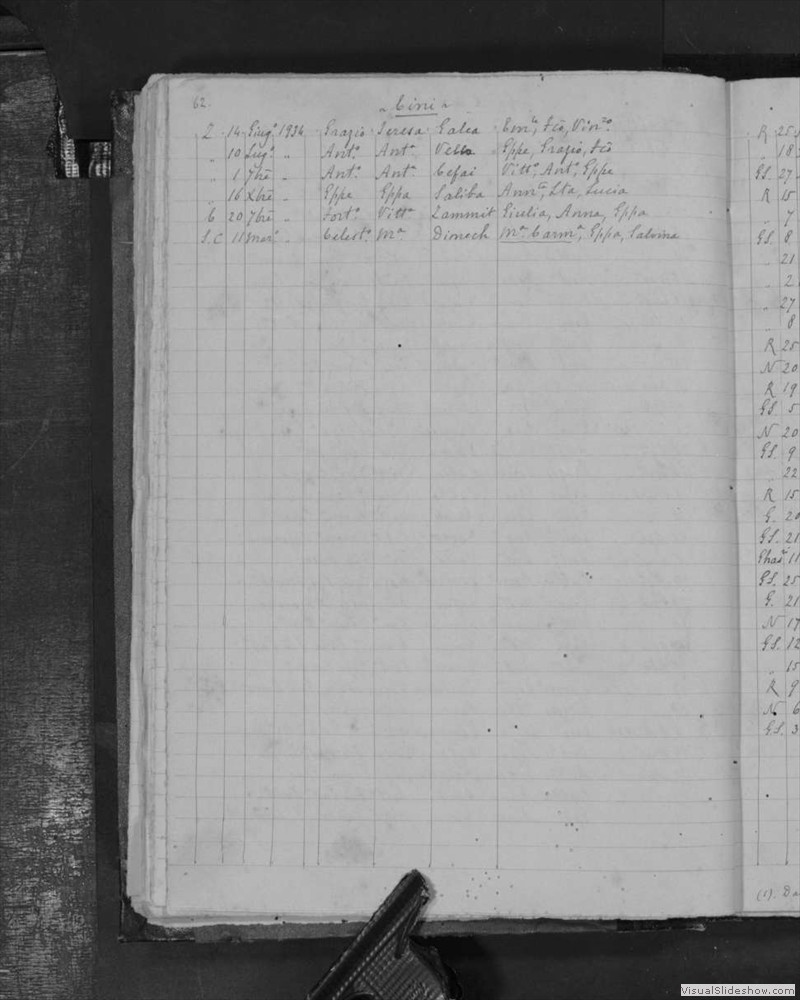 62.
„ Cini „
Z 14 Giug.º 1934 Grazio Teresa Galea Em.ª, Fcõ, Vin.zo
„ 10 Lug.º „ Ant.º Ant.ª Vella Eppe, Grazio, Fcõ
„ 1 7bre „ Ant.º Ant.ª Cefai Vitt.º, Ant.º, Eppe
„ 16 Xbre „ Eppe Eppa Saliba Ann.ª, Lta, Lucia
C 20 7bre „ Fort.º Vitt.ª Zammit Giulia, Anna, Eppa
S.C 11 Mar.º „ Celest.º M.ª Dimech M.ª Carm.ª, Eppa, Salvina
R 25
„ 18
GS. 27
R 15
„ 7
GS. 8
„ 21
„ 2
„ 27
„ 8
R 25
N 20
R 19
GS. 5
N 20
GS. 9
„ 22
R 15
G. 20
GS. 21
Ghas 11
GS. 25
G. 21
N 17
GS. 12
„ 15
R 9
N 6
GS. 3
(1). Da
VisualSlideshow.com